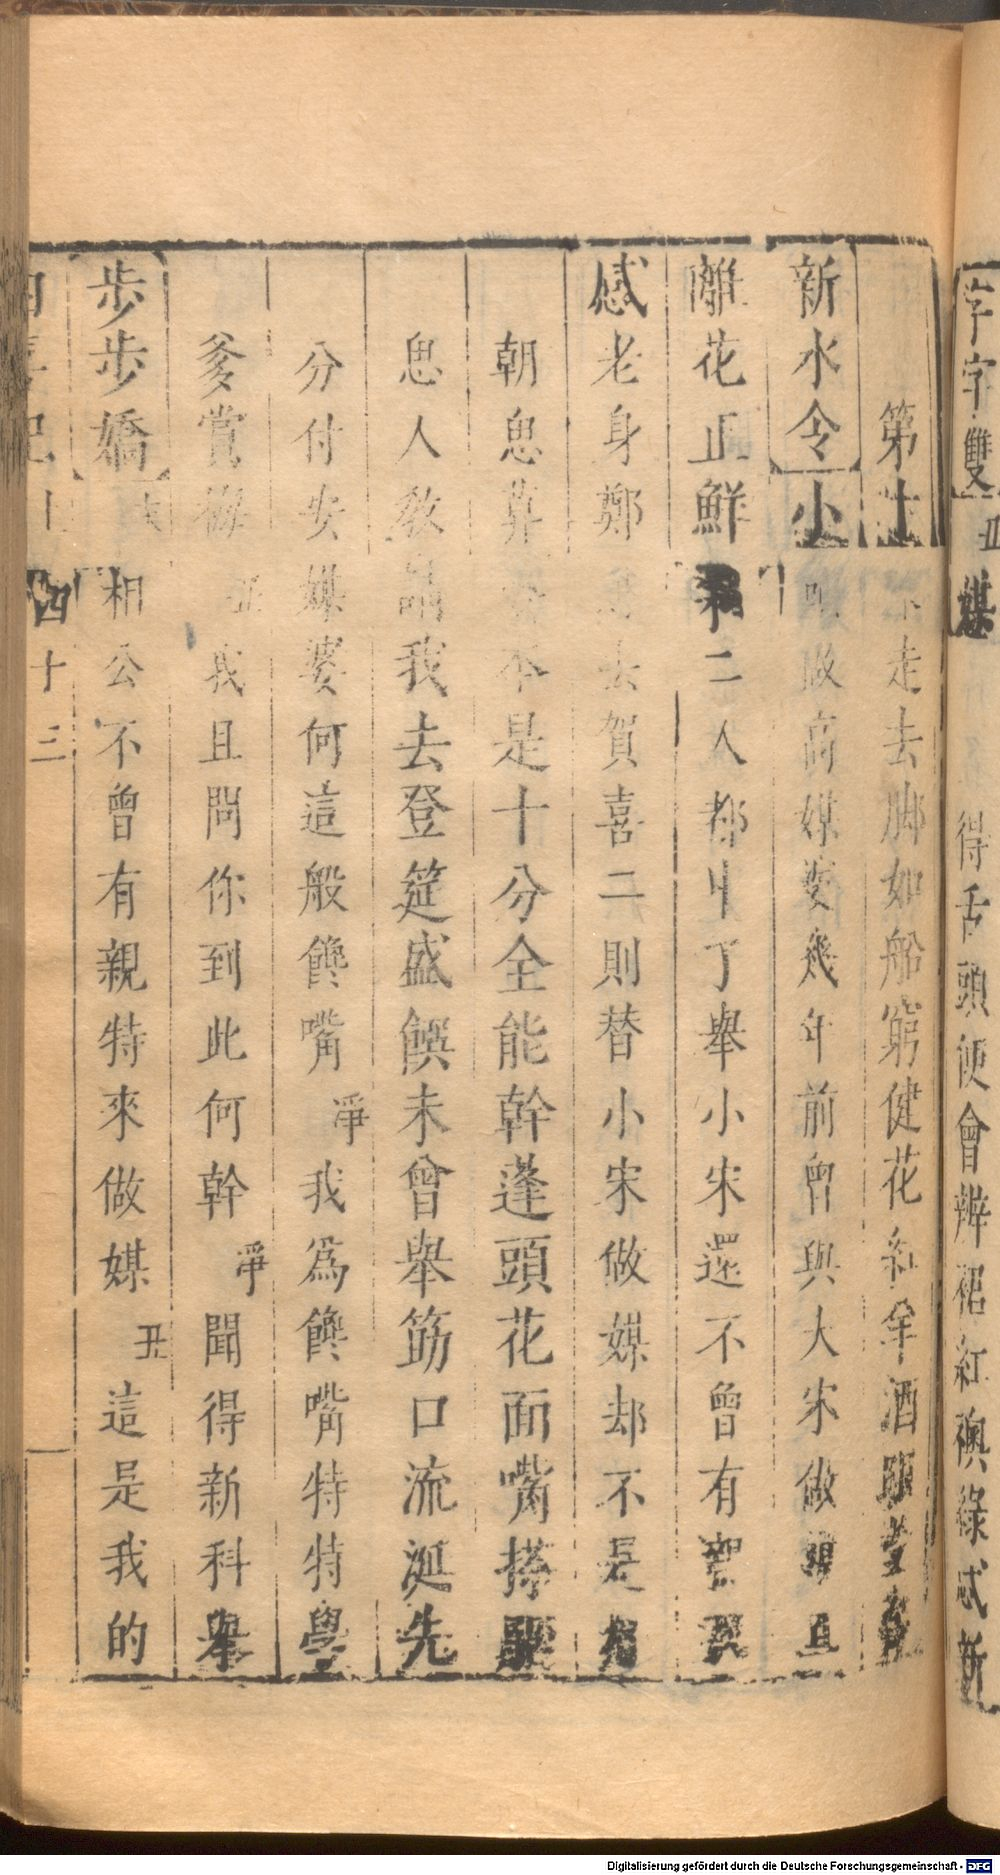 字字雙 丑 媒 得舌頭便會辨裙紅襖綠感新
第 走去脚如船窮健花紅羊酒
新水令 小 做高媒婆幾年前曾與大宋做
離花正鮮 二人都 了舉小宋還不曾有
感老身鄭 去賀喜二則替小宋做媒却不是
朝思 本是十分全能幹蓬頭花面嘴搽
思人教 我去登筵盛饌未曾舉筯口流涎先
分付安媒婆何這般饞嘴 淨 我爲饞嘴特特
爹賞 丑 我且問你到此何幹 淨 聞得新科舉
步步嬌 相公不曾有親特來做媒 丑 這是我的
四喜記 四十三
Digitalisierung gefördert durch die Deutsche Forschungsgemeinschaft - DFG